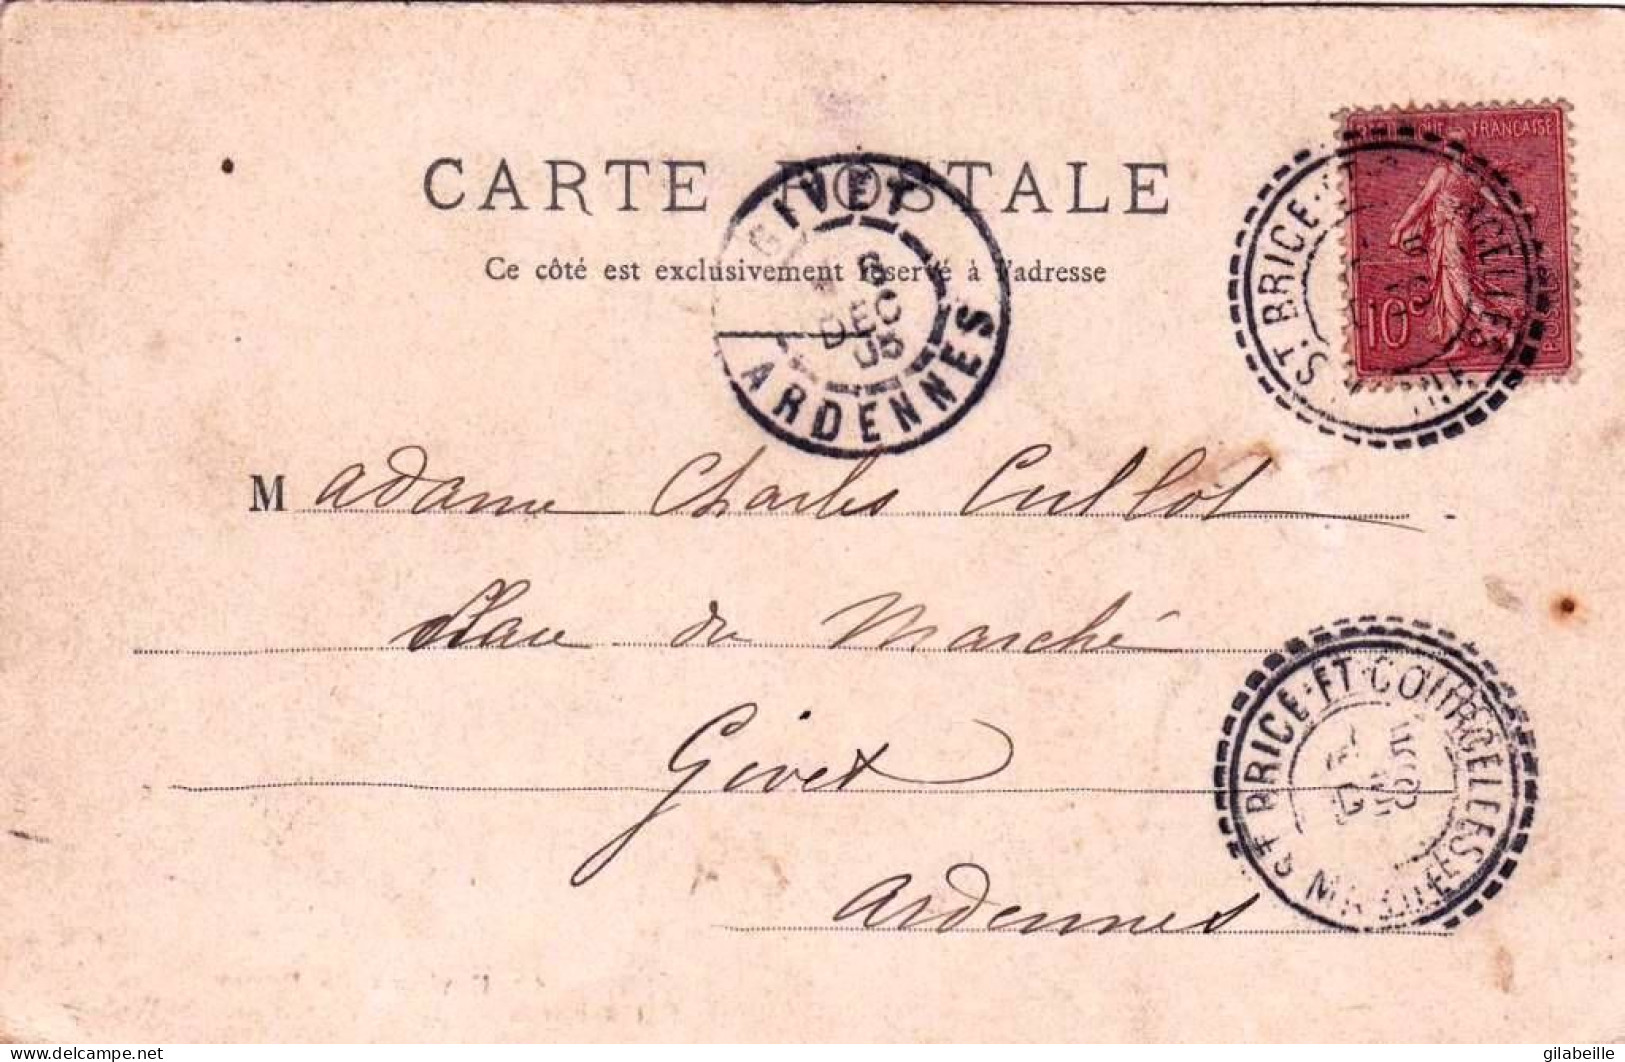 CARTE POSTALE
Ce côté est exclusivement réservé à l'adresse
GIVET
8
DEC
05
ARDENNES
RÉPUBLIQUE FRANÇAISE
10c
POSTES
ST BRICE
COURCELLES
Madame Charles Cullot
Place du Marché
Givet
Ardennes
ST BRICE-ET-COURCELLES
MARNE
gilabeille